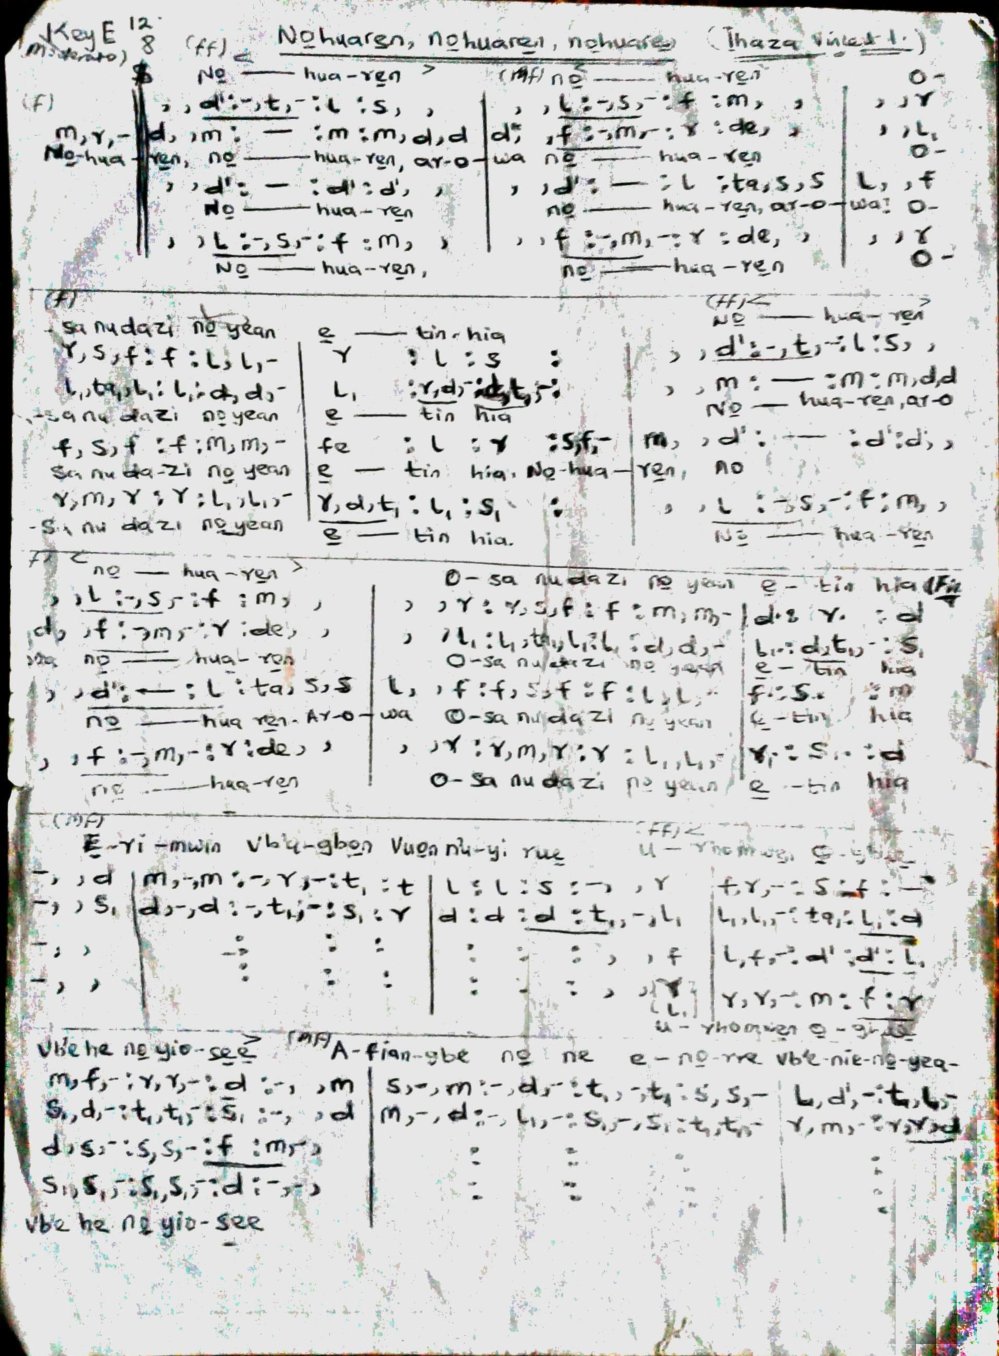 Key E 12/8 (ff) < Nọhuarẹn, nọhuarẹn, nọhuarẹn (Ihaza Vincent I.)
(Moderato) Nọ —— hua-rẹn > (mf) nọ —— hua-rẹn O-
(f) , , d':-,t,-:l :s, , | , , l:-,s,-:f :m, , | , ,r
m,r,- d, ,m: — :m :m,d,d | d, ,f:-,m,-:r :de, , | , ,l₁
Nọ-hua-rẹn, nọ —— hua-rẹn, ar-o-wa nọ —— hua-rẹn O-
, ,d': — :d' :d', , | , ,d': — :l :ta,s,s | l, ,f
Nọ —— hua-rẹn nọ —— hua-rẹn, ar-o-wa! O-
, ,l:-,s,-:f :m, , | , ,f:-,m,-:r :de, , | , ,r
Nọ —— hua-rẹn, nọ —— hua-rẹn O-
(f) (ff) <
-sa nu dazi nọ yean ẹ —— tin-hia Nọ —— hua-rẹn >
r,s,f:f:l,l,- | r :l :s : | , ,d':-,t,-:l:s, ,
l₁,ta₁,l₁:l₁:d,d,- | l₁ :r,d,-:d,t₁,-: | , ,m: — :m:m,d,d
-sa nu dazi nọ yean ẹ —— tin hia Nọ — hua-rẹn, ar-o
f,s,f:f:m,m,- | fe :l :r :s,f,- | m, ,d': — :d':d', ,
sa nu da-zi nọ yean ẹ — tin hia. Nọ-hua-rẹn, nọ
r,m,r:r:l₁,l₁,- | r,d,t₁:l₁:s₁ : | , ,l:-,s,-:f:m, ,
-sa nu dazi nọ yean ẹ — tin hia. Nọ — hua-rẹn
f) < nọ — hua-rẹn > O-sa nu dazi nọ yean ẹ- tin hia (Fin
, ,l:-,s,-:f :m, , | , ,r:r,s,f:f:m,m,- | d.: r. :d
d, ,f:-,m,-:r :de, , | , ,l₁:l₁,ta₁,l₁:l₁:d,d,- | l₁.:d,t₁,-:s₁
wa nọ —— hua-rẹn O-sa nu dazi nọ yean ẹ- tin hia
, ,d':—:l:ta,s,s | l, ,f:f,s,f:f:l,l,- | f.:s. :m
nọ —— hua rẹn. Ar-o-wa O-sa nu dazi nọ yean ẹ-tin hia
, ,f:-,m,-:r:de, , | , ,r:r,m,r:r:l₁,l₁,- | r,-:s₁. :d
nọ —— hua-rẹn O-sa nu dazi nọ yean ẹ -tin hia
(mf) (ff) <
Ẹ-ri-mwin vb'a-gbọn vuẹn n'u-yi ruẹ u-rhomwẹn
-, ,d | m,-,m:-,r,-:t₁:t | l:l:s:-, ,r | f,r,-:s:f:—
-, ,s₁ | d,-,d:-,t₁,-:s₁:r | d:d:d:t₁,-,l₁ | l₁,l₁,-:ta₁:l₁:d
-, , | : : : | : : : , ,f | l,f,-:d':d':l
-, , | : : : | : : : , ,r (l₁ | r,r,-:m:f:r
u-rhomwẹn
vb'e he nọ yio-sẹẹ > (mf) A-fian-gbe nọ ne e-nọ-rre vb'e-niẹ-nọ-yea-
m,f,-:r,r,-:d :-, ,m | s,-,m:-,d,-:t₁,-,t₁:s,s,- | l,d',-:t,l,-
s₁,d,-:t₁,t₁,-:s₁:-, ,d | m,-,d:-,l₁,-:s₁,-,s₁:t₁,t₁,- | r,m,-:r,r,d
d,s,-:s,s,-:f :m,-, | : : : | :
s₁,s₁,-:s₁,s₁,-:d:-,-, | : : : | :
vb'e he nọ yio-sẹẹ